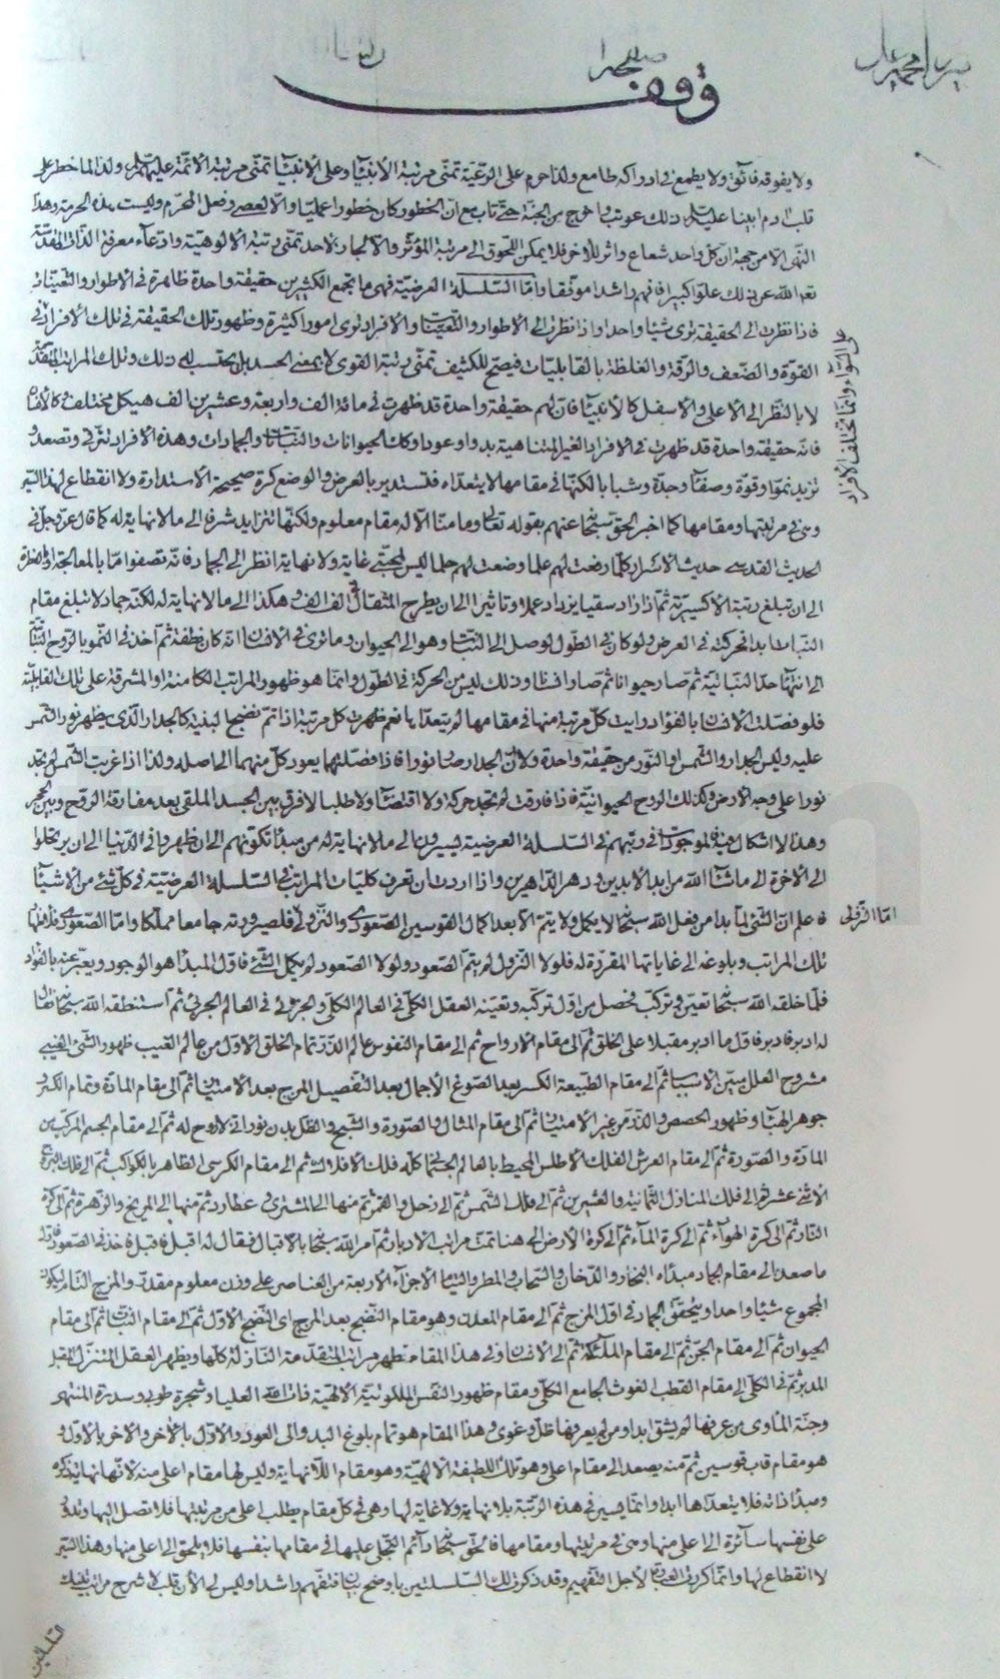 وقف
ولا يفوقه فائق ولا يطمع في ادراكه طامع ولذا حرم على الرعية تمنى مرتبة الأنبياء وعلى الانبياء تمنى مرتبة الائمة عليهم السلم ولذا لما خطر على
قلب ادم ابينا عليه السلم ذلك عوتب وا خرج من الجنة حتى تاب مع ان الخطور كان خطورا عمليا والا لعصى وفعل المحرم وليست هذه الحرمة وهذا
النهى الا من جهة ان كل واحد شعاع واثر للاخر فلا يمكن اللحوق الى مرتبة المؤثر والا لجاز لاحد تمنى رتبة الالوهية وادعاء معرفة الذات المقدسة
تعالى الله عن ذلك علوا كبيرا فافهم راشدا موفقا واما السلسلة العرضية فهى ما يجمع الكثيرين حقيقة واحدة ظاهرة في الاطوار والتعينات
فاذا نظرت الى الحقيقة ترى شيئا واحدا واذا نظرت الى الاطوار والتعينات والافراد ترى امورا كثيرة وظهور تلك الحقيقة في تلك الافراد في
على السواء وانما تختلف الافراد
القوة والضعف والرقة والغلظة بالقابليات فيصح للكثيف تمنى رتبة القوى لا بمعنى الحسد بل يحتسب له ذلك وتلك المراتب المتقدمة
لا بالنظر الى الاعلى والاسفل كالانبياء فان لهم حقيقة واحدة قد ظهرت في مائة الف واربعة وعشرين الف هيكل مختلف وكالانسان
فانه حقيقة واحدة قد ظهرت في الافراد الغير المتناهية بدوا وعودا وكذا الحيوانات والنباتات والجمادات وهذه الافراد تترقى وتصعد و
تزيد نموا وقوة وصفاء وحدة وشبابا لكنها في مقامها لا يتعداه فتستدير بالعرض والوضع كرة صحيحة الاستدارة ولا انقطاع لهذا السير
وهى في مرتبتها ومقامها كما اخبر الحق سبحانه عنهم بقوله تعالى وما منا الا له مقام معلوم ولكنها تتزايد شرفا الى ما لا نهاية له كما قال عز وجل في
الحديث القدسى حديث الاسرار كلما رفعت لهم علما وضعت لهم حلما ليس لمحبتى غاية ولا نهاية انظر الى الجماد فانه تصفو اما بالمعالجة او الفطرة
الى ان تبلغ رتبة الاكسيرية ثم اذا زاد سقيا يزداد عملا وتاثيرا الى ان يطرح المثقال على الف الف وهكذا الى ما لا نهاية له لكنه جماد لا تبلغ مقام
النبات ابدا لحركته في العرض ولو كان في الطول لوصل الى النبات وهو الى الحيوان وما ترى في الانسان انه كان نطفة ثم اخذ في النمو بالروح النباتية
الى انتهاء حد النباتية ثم صار حيوانا ثم صار انسانا وذلك ليس من الحركة في الطول وانما هو ظهور المراتب الكامنة او المشرقة على تلك القابلية
فلو فصلت الانسان بالفؤاد رايت كل مرتبة منها في مقامها لم يتعداها نعم ظهرت كل مرتبة اذا تم نضج البنية كالجدار الذى يظهر نور الشمس
عليه وليس الجدار والشمس والنور من حقيقة واحدة ولا ان الجدار صار نورا فاذا فصلتهما يعود كل منهما الى اصله ولذا اذا غربت الشمس لم تجد
نورا على وجه الارض وكذلك الروح الحيوانية فاذا فارقت لم تجد حركة ولا اقتضاء ولا طلبا لا فرق بين الجسد الملقى بعد مفارقة الروح وبين الحجر
وهذا لا اشكال فيه فالموجودات في رتبهم في السلسلة العرضية يسيرون الى ما لا نهاية له من مبدأ تكونهم الى ان ظهروا في الدنيا الى ان يرتحلوا
الى الاخرة الى ما شاء الله من ابد الابدين ودهر الداهرين واذا اردت ان تعرف كليات المراتب في السلسلة العرضية في كل شئ من الاشياء
فاعلم ان الشئ لما بدا من فعل الله سبحانه لا يكمل ولا يتم الا بعد اكمال القوسين الصعودى والنزولى فلصيرورته جامعا مملكا واما الصعودى فلانها
اما النزولى
تلك المراتب وبلوغه الى غاياتها المقررة له فلولا النزول لم يتم الصعود ولولا الصعود لم يكمل الشئ فاول المبدأ هو الوجود ويعبر عنه بالفؤاد
فلما خلقه الله سبحانه تعين وتركب فحصل من اول تركبه وتعينه العقل الكلى في العالم الكلى والجزئى في العالم الجزئى ثم استنطقه الله سبحانه فقال
له ادبر فادبر فاول ما ادبر مقبلا على الخلق ثم الى مقام الارواح ثم الى مقام النفوس عالم الذر تمام الخلق الاول من عالم الغيب ظهور الشئ الغيبى
مشروح العلل مبين الاسباب ثم الى مقام الطبيعة الكسر بعد الصوغ الاجمال بعد التفصيل المزج بعد الامتياز ثم الى مقام المادة وتمام الكسر
جوهر الهباء وظهور الحصص والذر من غير الامتياز ثم الى مقام المثال والصورة والشبح والظل بدن نورانى لا روح له ثم الى مقام الجسم المركب من
المادة والصورة ثم الى مقام العرش الفلك الاطلس المحيط بالعالم الجسمانى كله فلك الافلاك ثم الى مقام الكرسى الظاهر بالكواكب ثم الى فلك البروج
الاثنى عشر ثم الى فلك المنازل الثمانية والعشرين ثم الى فلك الشمس ثم الى زحل والقمر ثم منها الى المشترى وعطارد ثم منها الى المريخ والزهرة ثم الى كرة
النار ثم الى كرة الهواء ثم الى كرة الماء ثم الى كرة الارض الى هنا تمت مراتب الادبار ثم امر الله سبحانه بالاقبال فقال له اقبل فاقبل فاخذ في الصعود فاول
ما صعد الى مقام الجماد مبداه البخار والدخان والسحاب والمطر والتيام الاجزاء الاربعة من العناصر على وزن معلوم مقدر والمزج التام ليكون
المجموع شيئا واحدا ويتحقق الجماد في اول المزج ثم الى مقام المعدن وهو مقام النضج بعد المزج اى النضج الاول ثم الى مقام النبات ثم الى مقام
الحيوان ثم الى مقام الجن ثم الى مقام الملائكة ثم الى الانسان وفي هذا المقام تظهر مراتب المتقدمة النازلة كلها ويظهر العقل المتنزل المقبل
المدبر ثم في الكلى الى مقام القطب الغوث الجامع الكلى ومقام ظهور النفس الملكوتية الالهية ذات الله العليا وشجرة طوبى وسدرة المنتهى
وجنة المأوى من عرفها لم يشق ابدا ومن لم يعرفها ضل وغوى وهذا المقام هو تمام بلوغ البدو الى العود والاول بالاخر والاخر بالاول و
هو مقام قاب قوسين ثم منه يصعد الى مقام اعلى وهو تلك اللطيفة الالهية وهو مقام اللانهاية وليس لها مقام اعلى منه لانها نهاية ذكره
ومبدأ ذاته فلا يتعداها ابدا وانما يسير في هذه الرتبة بلا نهاية ولا غاية لها وهى في كل مقام يطلب اعلى من مرتبتها فلا تصل اليها وتدور
على نفسها سائرة الى اعلى منها وهى في مرتبتها ومقامها فالحق سبحانه دائم التجلى عليها في مقامها بنفسها فلا يلحق الى اعلى منها وهذا السير
لا انقطاع لها وانما كررت العبارة لاجل التفهيم وقد ذكرت لك السلسلتين باوضح بيان فتفهم راشدا وليس لى الان قلب لا شرح مراتب تينك
السلسلتين